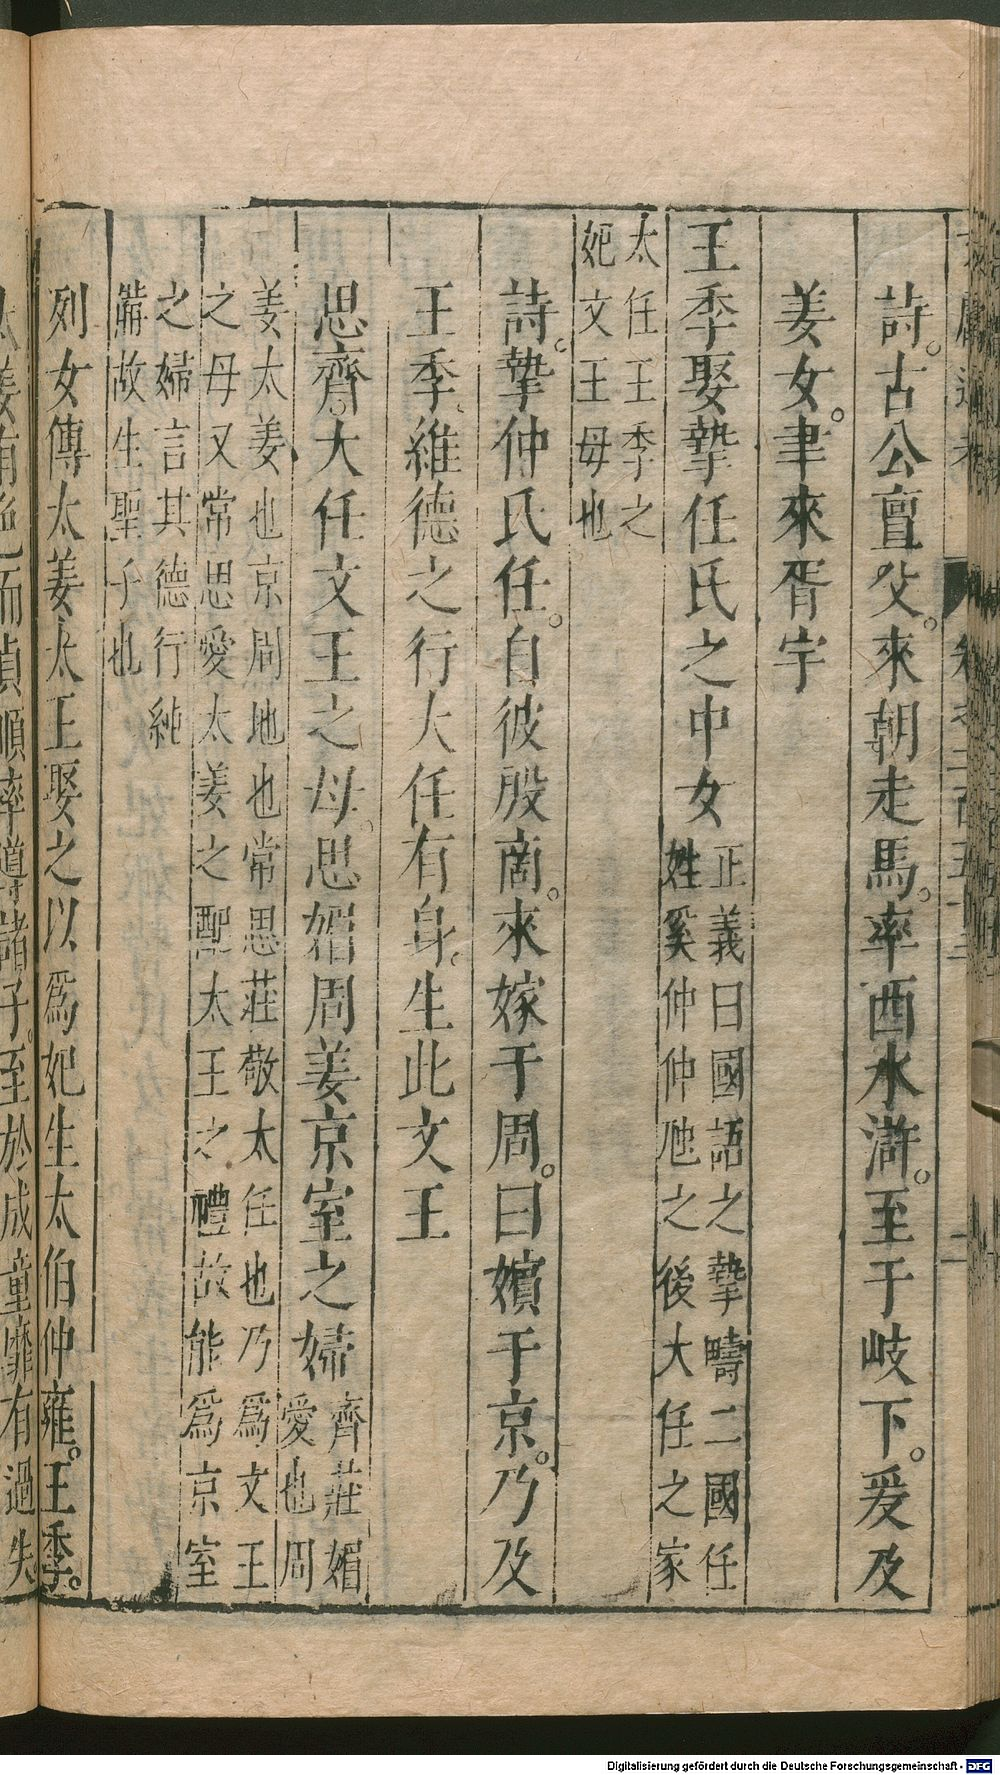 詩。古公亶父。來朝走馬。率西水滸。至于岐下。爰及
姜女。聿來胥宇
王季娶摯任氏之中女
正義曰國語之摯疇二國任
姓奚仲仲虺之後大任之家
太任王季之
妃文王母也
詩。摯仲氏任。自彼殷商。來嫁于周。曰嬪于京。乃及
王季。維德之行大任有身。生此文王
思齊。大任文王之母。思媚周姜京室之婦
齊莊媚
愛也周
姜太姜也京周地也常思莊敬太任也乃爲文王
之母又常思愛太姜之配太王之禮故能爲京室
之婦言其德行純
備故生聖子也
列女傳太姜太王娶之以爲妃生太伯仲雍。王季。
太姜有色而貞順率道諸子。至於成童靡有過失
Digitalisierung gefördert durch die Deutsche Forschungsgemeinschaft - DFG